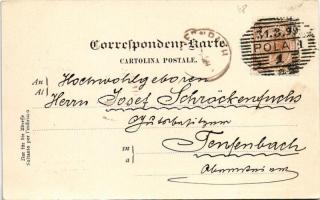 Correspondenz-Karte
CARTOLINA POSTALE.
31.8.99
POLA 1
An Hochwohlgeboren
Al
Herrn Josef Schröckenfuchs
Gutsbesitzer
in
a
Obersteier
Nur für die Adresse
Soltanto per l'indirizzo